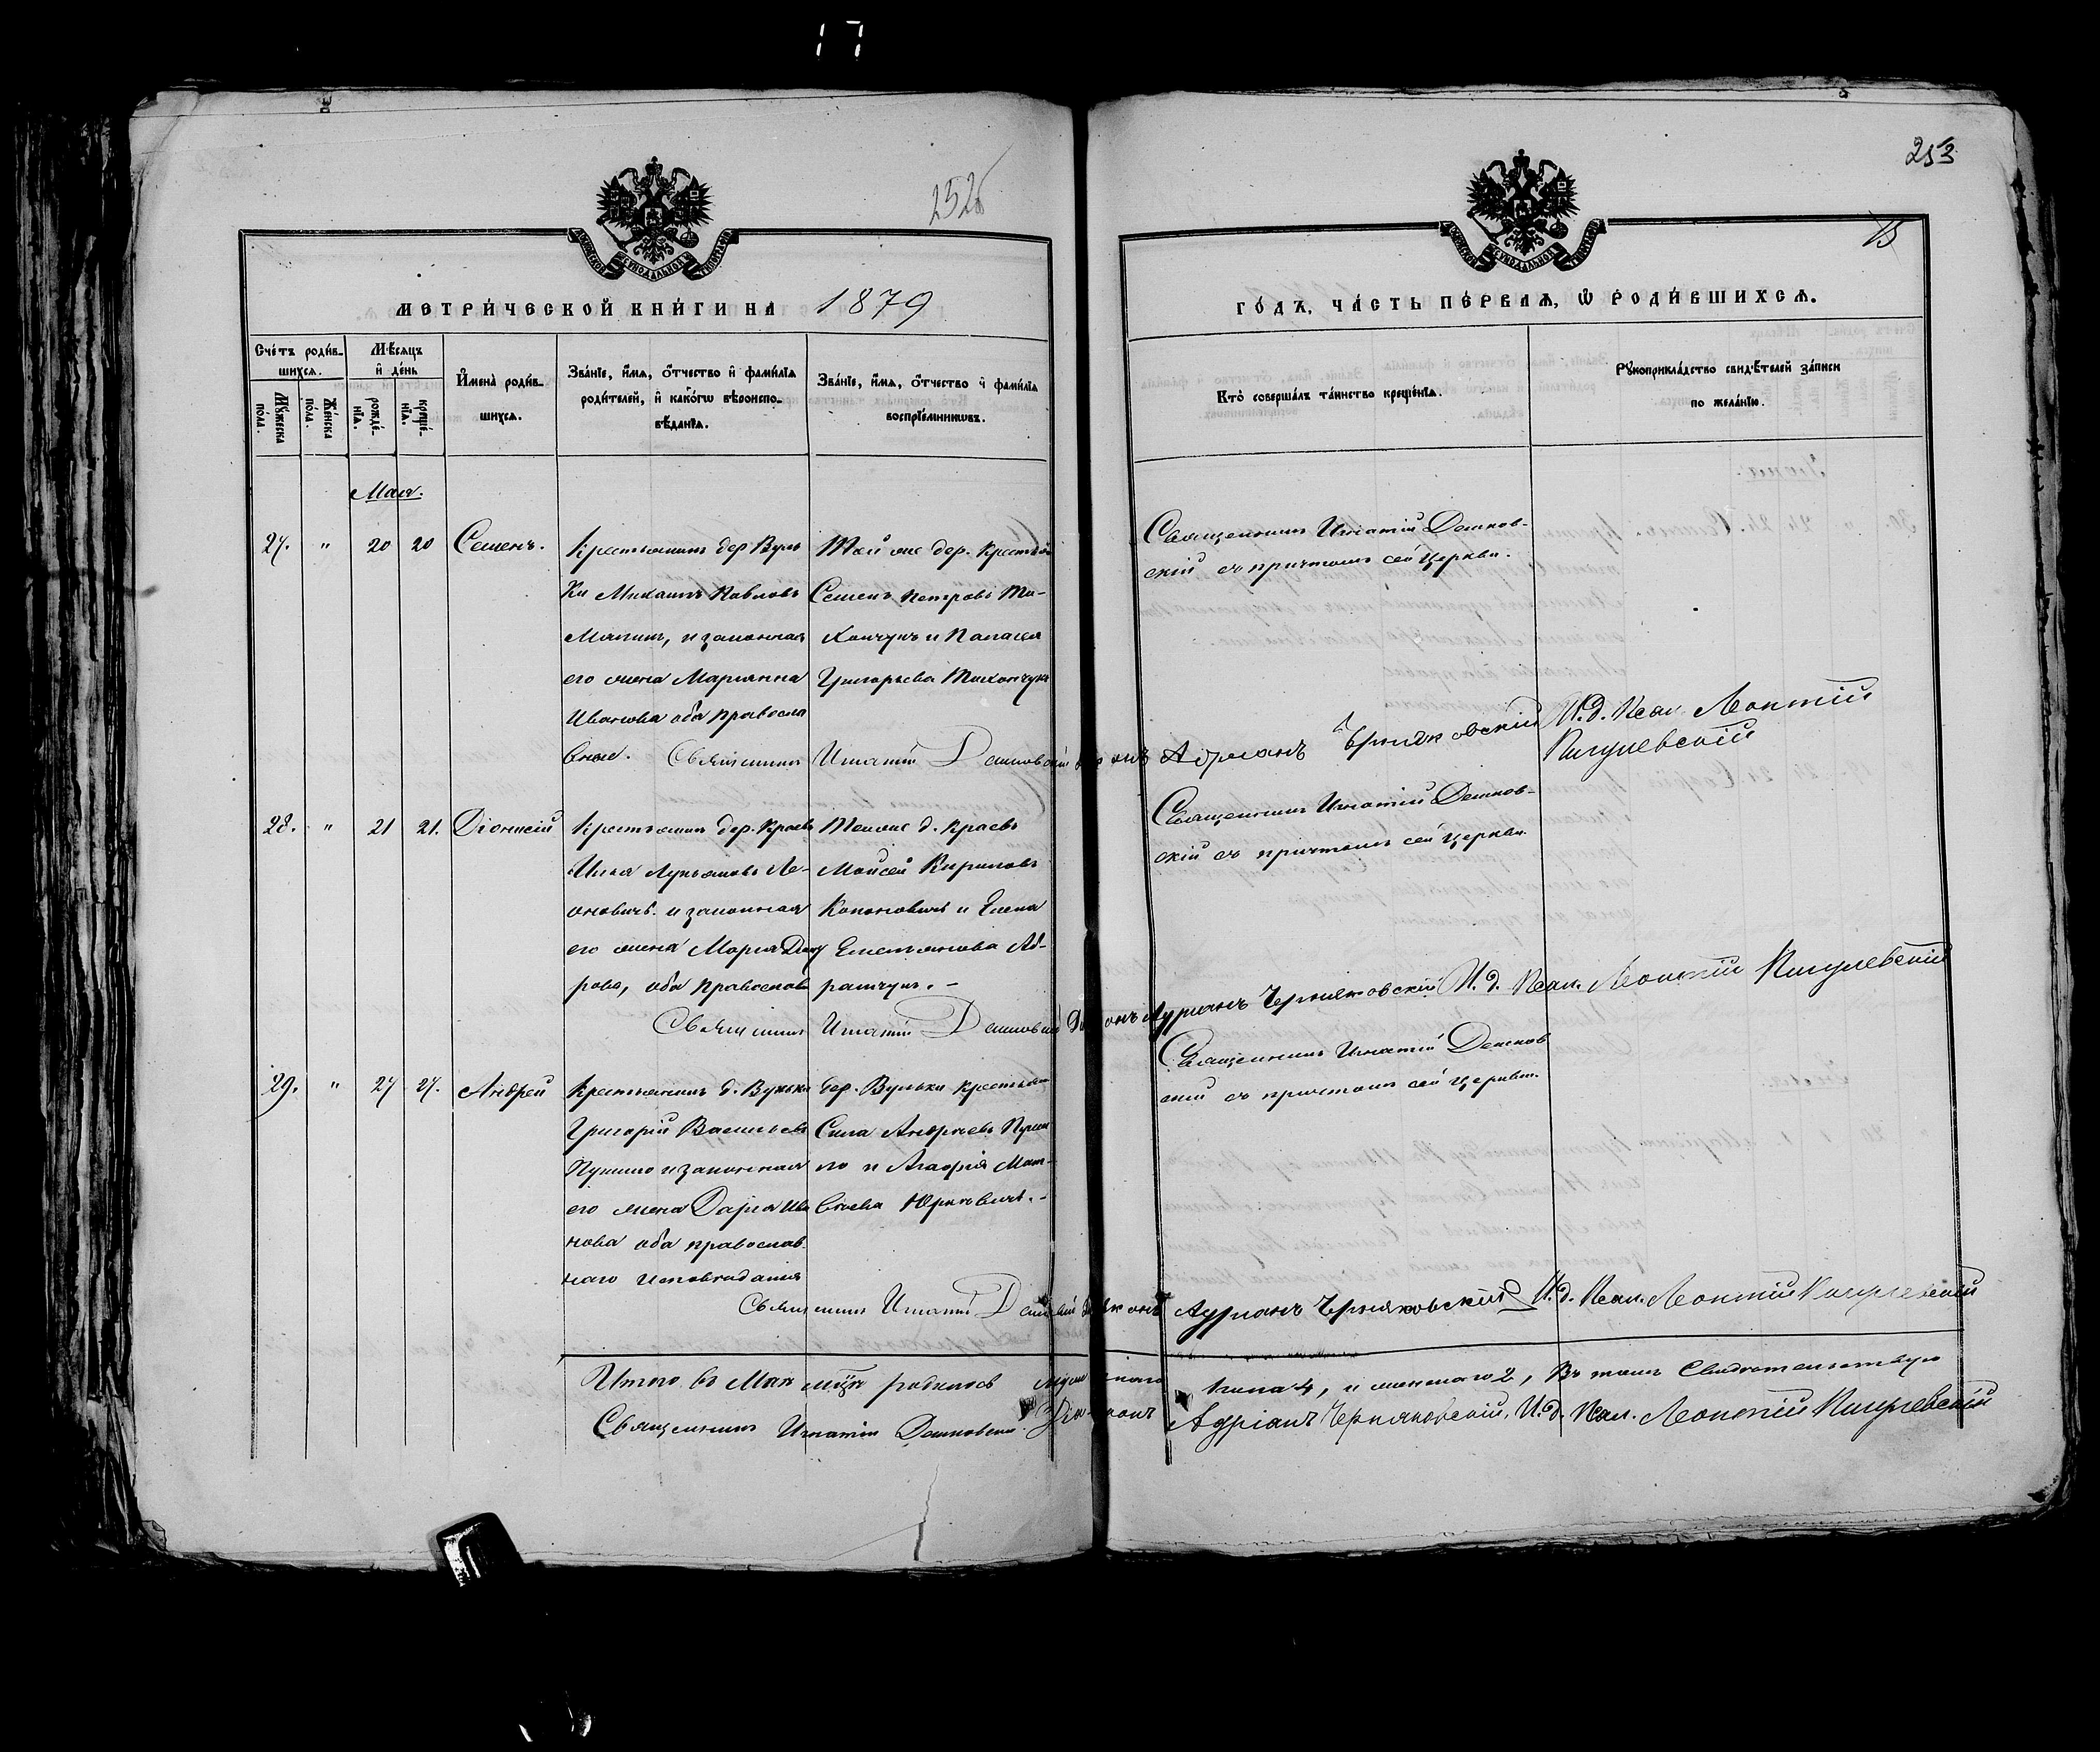 17
252
253
15
МЕТРИЧЕСКОЙ КНИГИ НА 1879
ГОДЪ, ЧАСТЬ ПЕРВАЯ, Ѡ РОДИВШИХСЯ.
Счетъ родив-
шихся.
Мужеска пола.
Женска пола.
Мѣсяцъ
и день
рожде-
нія.
креще-
нія.
Имена родив-
шихся.
Званіе, имя, отчество и фамилія
родителей, и какогѡ вѣроиспо-
вѣданія.
Званіе, имя, отчество и фамилія
воспріемниковъ.
Кто совершалъ таинство крещенія.
Рукоприкладство свидѣтелей записи
по желанію.
Мая.
27. " 20 20 Семенъ.
Крестьянинъ дер Вуль
ки Михаилъ Павловъ
и законная
его жена Марианна
Иванова оба правосла
вные.
Той же дер. Крестьян
Семенъ Петровъ Ти-
хончукъ и Палагея
Григорьева Тихончукъ
Священникъ Игнатій Дешков-
скій съ причтомъ сей Церкви.
Священникъ Игнатій Дешковскій Діаконъ Адріанъ Черняковскій И.д. Псал. Леонтій
Пигулевскій
28. " 21 21. Діонисій
Крестьянинъ дер. Краевъ
Илья Лукьяновъ Ле-
оновичъ. и законная
его жена Марія
рова, оба православ
Тойже д. Краевъ
Моисей Кириловъ
Кононовичъ и Елена
Емельянова Аб-
рамчукъ. -
Священникъ Игнатій Дешков-
скій съ причтомъ сей церкви.
Священникъ Игнатій Дешковскій Діаконъ Адріанъ Черняковскій И.д. Псал. Леонтій Пигулевскій
29. " 27 27. Андрей
Крестьянинъ д. Вульки
Григорій Васильевъ
и законная
его жена Дарія Ива
нова оба православ
наго исповѣданія
дер. Вульки крестьян
Сила Андреевъ
ло и Агафія Мат-
вѣева Юрковичъ. -
Священникъ Игнатій Дешков
скій съ причтомъ сей церкви.
Священникъ Игнатій Дешковскій Діаконъ Адріанъ Черняковскій И.д. Псал. Леонтій Пигулевскій
Итого въ Маѣ м-цѣ родилось мужескаго пола 4, и женскаго 2, Въ томъ Свидѣтельствую
Священникъ Игнатій Дешковскій. Діаконъ Адріанъ Черняковскій, И.д. Псал. Леонтій Пигулевскій